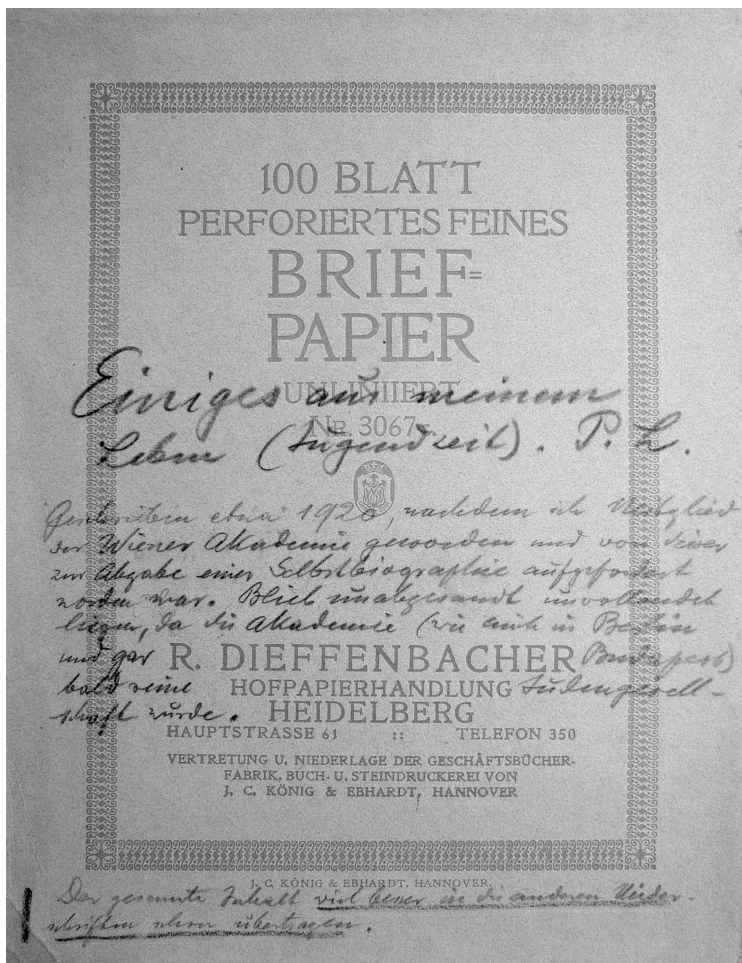 100 BLATT
PERFORIERTES FEINES
BRIEF=
PAPIER
UNLINIIERT
NR. 3067
Einiges aus meinem
Leben (Jugendzeit). P. L.
Geschrieben etwa 1920, nachdem ich Mitglied
der Wiener Akademie geworden und von dieser
zur Abgabe einer Selbstbiographie aufgefordert
worden war. Blieb unabgesandt unvollendet
liegen, da die Akademie (wie auch in Berlin
und gar Budapest)
bald reine Judengesell-
schaft wurde.
R. DIEFFENBACHER
HOFPAPIERHANDLUNG
HEIDELBERG
HAUPTSTRASSE 61 :: TELEFON 350
VERTRETUNG U. NIEDERLAGE DER GESCHÄFTSBÜCHER-
FABRIK, BUCH- U. STEINDRUCKEREI VON
J. C. KÖNIG & EBHARDT, HANNOVER
J. C. KÖNIG & EBHARDT, HANNOVER.
Der gesamte Inhalt viel besser in die anderen Nieder-
schriften schon übertragen.